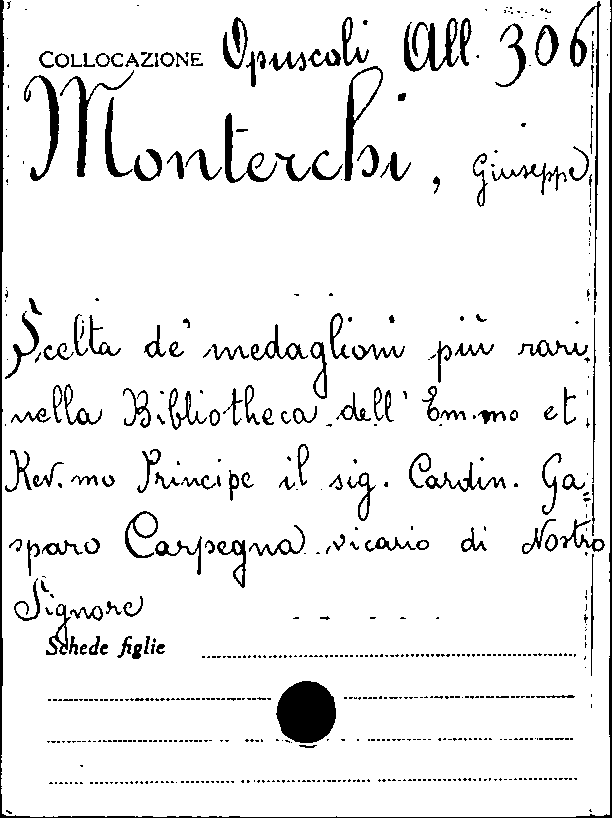 COLLOCAZIONE Opuscoli All. 306
Monterchi, Giuseppe
Scelta de' medaglioni più rari
nella Bibliotheca dell' Em.mo et
Rev.mo Principe il sig. Cardin. Ga-
sparo Carpegna vicario di Nostro
Signore
Schede figlie